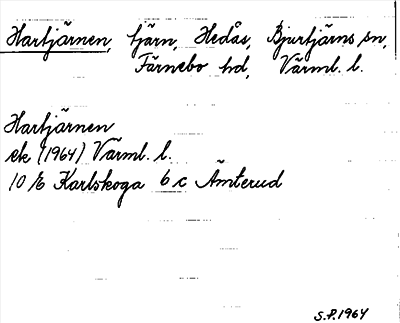 Hartjärnen, tjärn, Hedås, Bjurtjärns sn,
Färnebo hd, Värml. l.
Hartjärnen
ek (1964) Värml. l.
10 E Karlskoga 6 c Ämterud
S.P. 1964